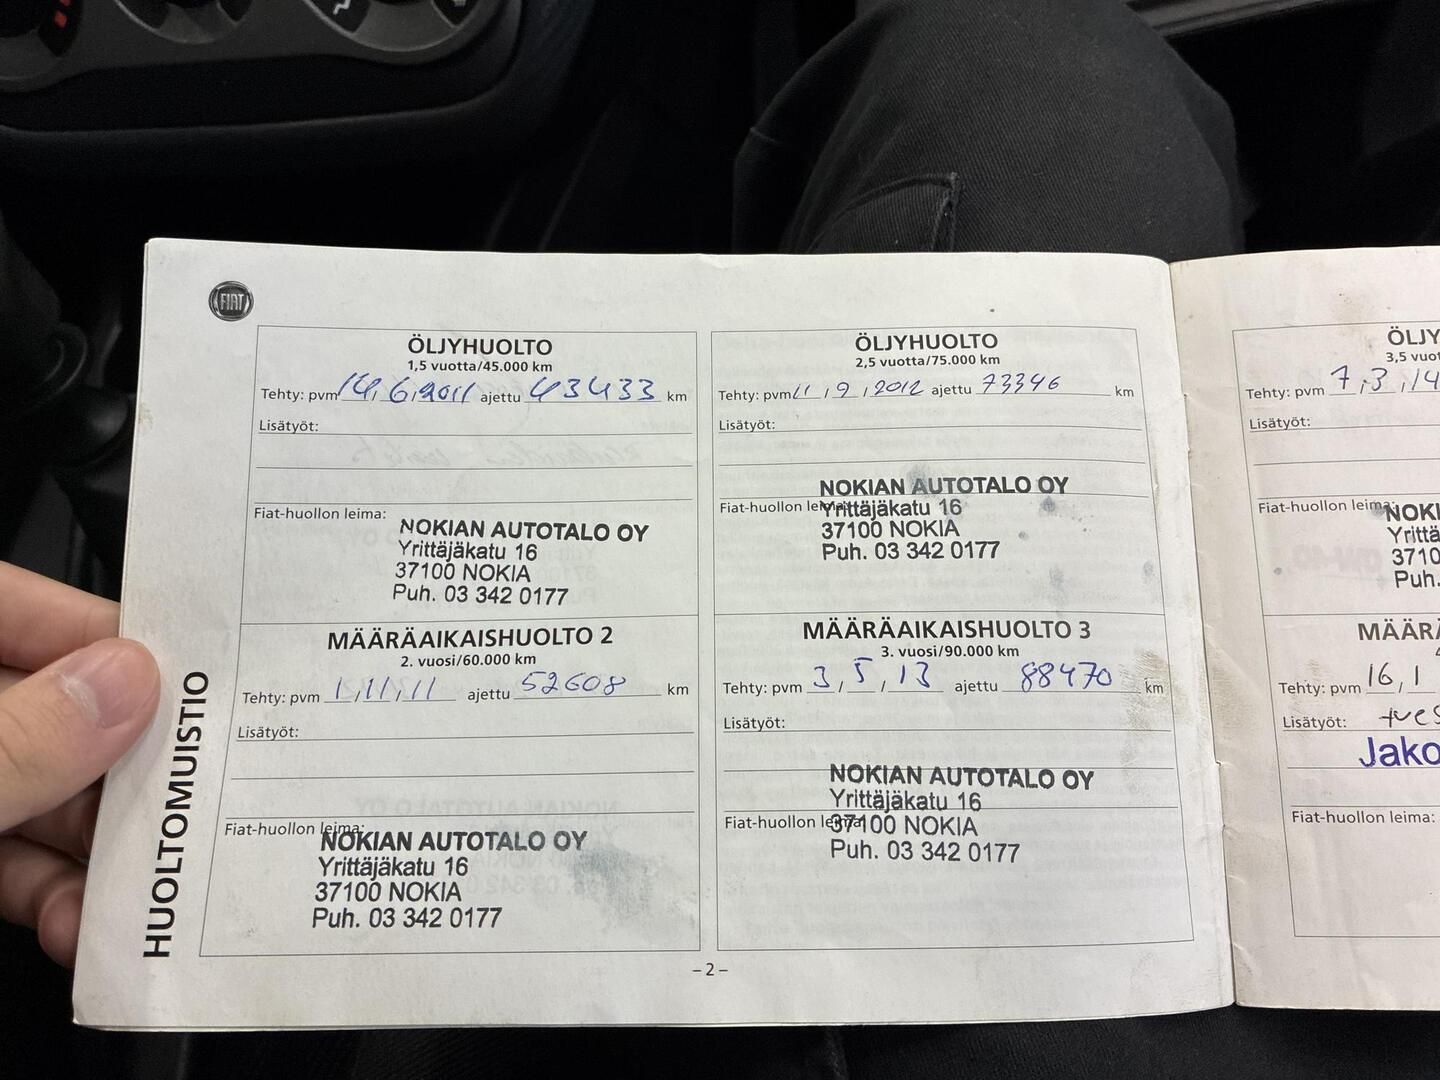 FIAT
HUOLTOMUISTIO
ÖLJYHUOLTO
1,5 vuotta/45.000 km
Tehty: pvm 14,6,2011 ajettu 43433 km
Lisätyöt:
Fiat-huollon leima:
NOKIAN AUTOTALO OY
Yrittäjäkatu 16
37100 NOKIA
Puh. 03 342 0177
MÄÄRÄAIKAISHUOLTO 2
2. vuosi/60.000 km
Tehty: pvm 1,11,11 ajettu 52608 km
Lisätyöt:
Fiat-huollon leima:
NOKIAN AUTOTALO OY
Yrittäjäkatu 16
37100 NOKIA
Puh. 03 342 0177
ÖLJYHUOLTO
2,5 vuotta/75.000 km
Tehty: pvm 11,9,2012 ajettu 73346 km
Lisätyöt:
Fiat-huollon leima:
NOKIAN AUTOTALO OY
Yrittäjäkatu 16
37100 NOKIA
Puh. 03 342 0177
MÄÄRÄAIKAISHUOLTO 3
3. vuosi/90.000 km
Tehty: pvm 3,5,13 ajettu 88470 km
Lisätyöt:
Fiat-huollon leima:
NOKIAN AUTOTALO OY
Yrittäjäkatu 16
37100 NOKIA
Puh. 03 342 0177
– 2 –
ÖLJY
3,5 vuot
Tehty: pvm 7,3,14
Lisätyöt:
Fiat-huollon leima:
NOKI
Yrittä
3710
Puh.
MÄÄRÄ
Tehty: pvm 16,1
Lisätyöt:
Jako
Fiat-huollon leima: